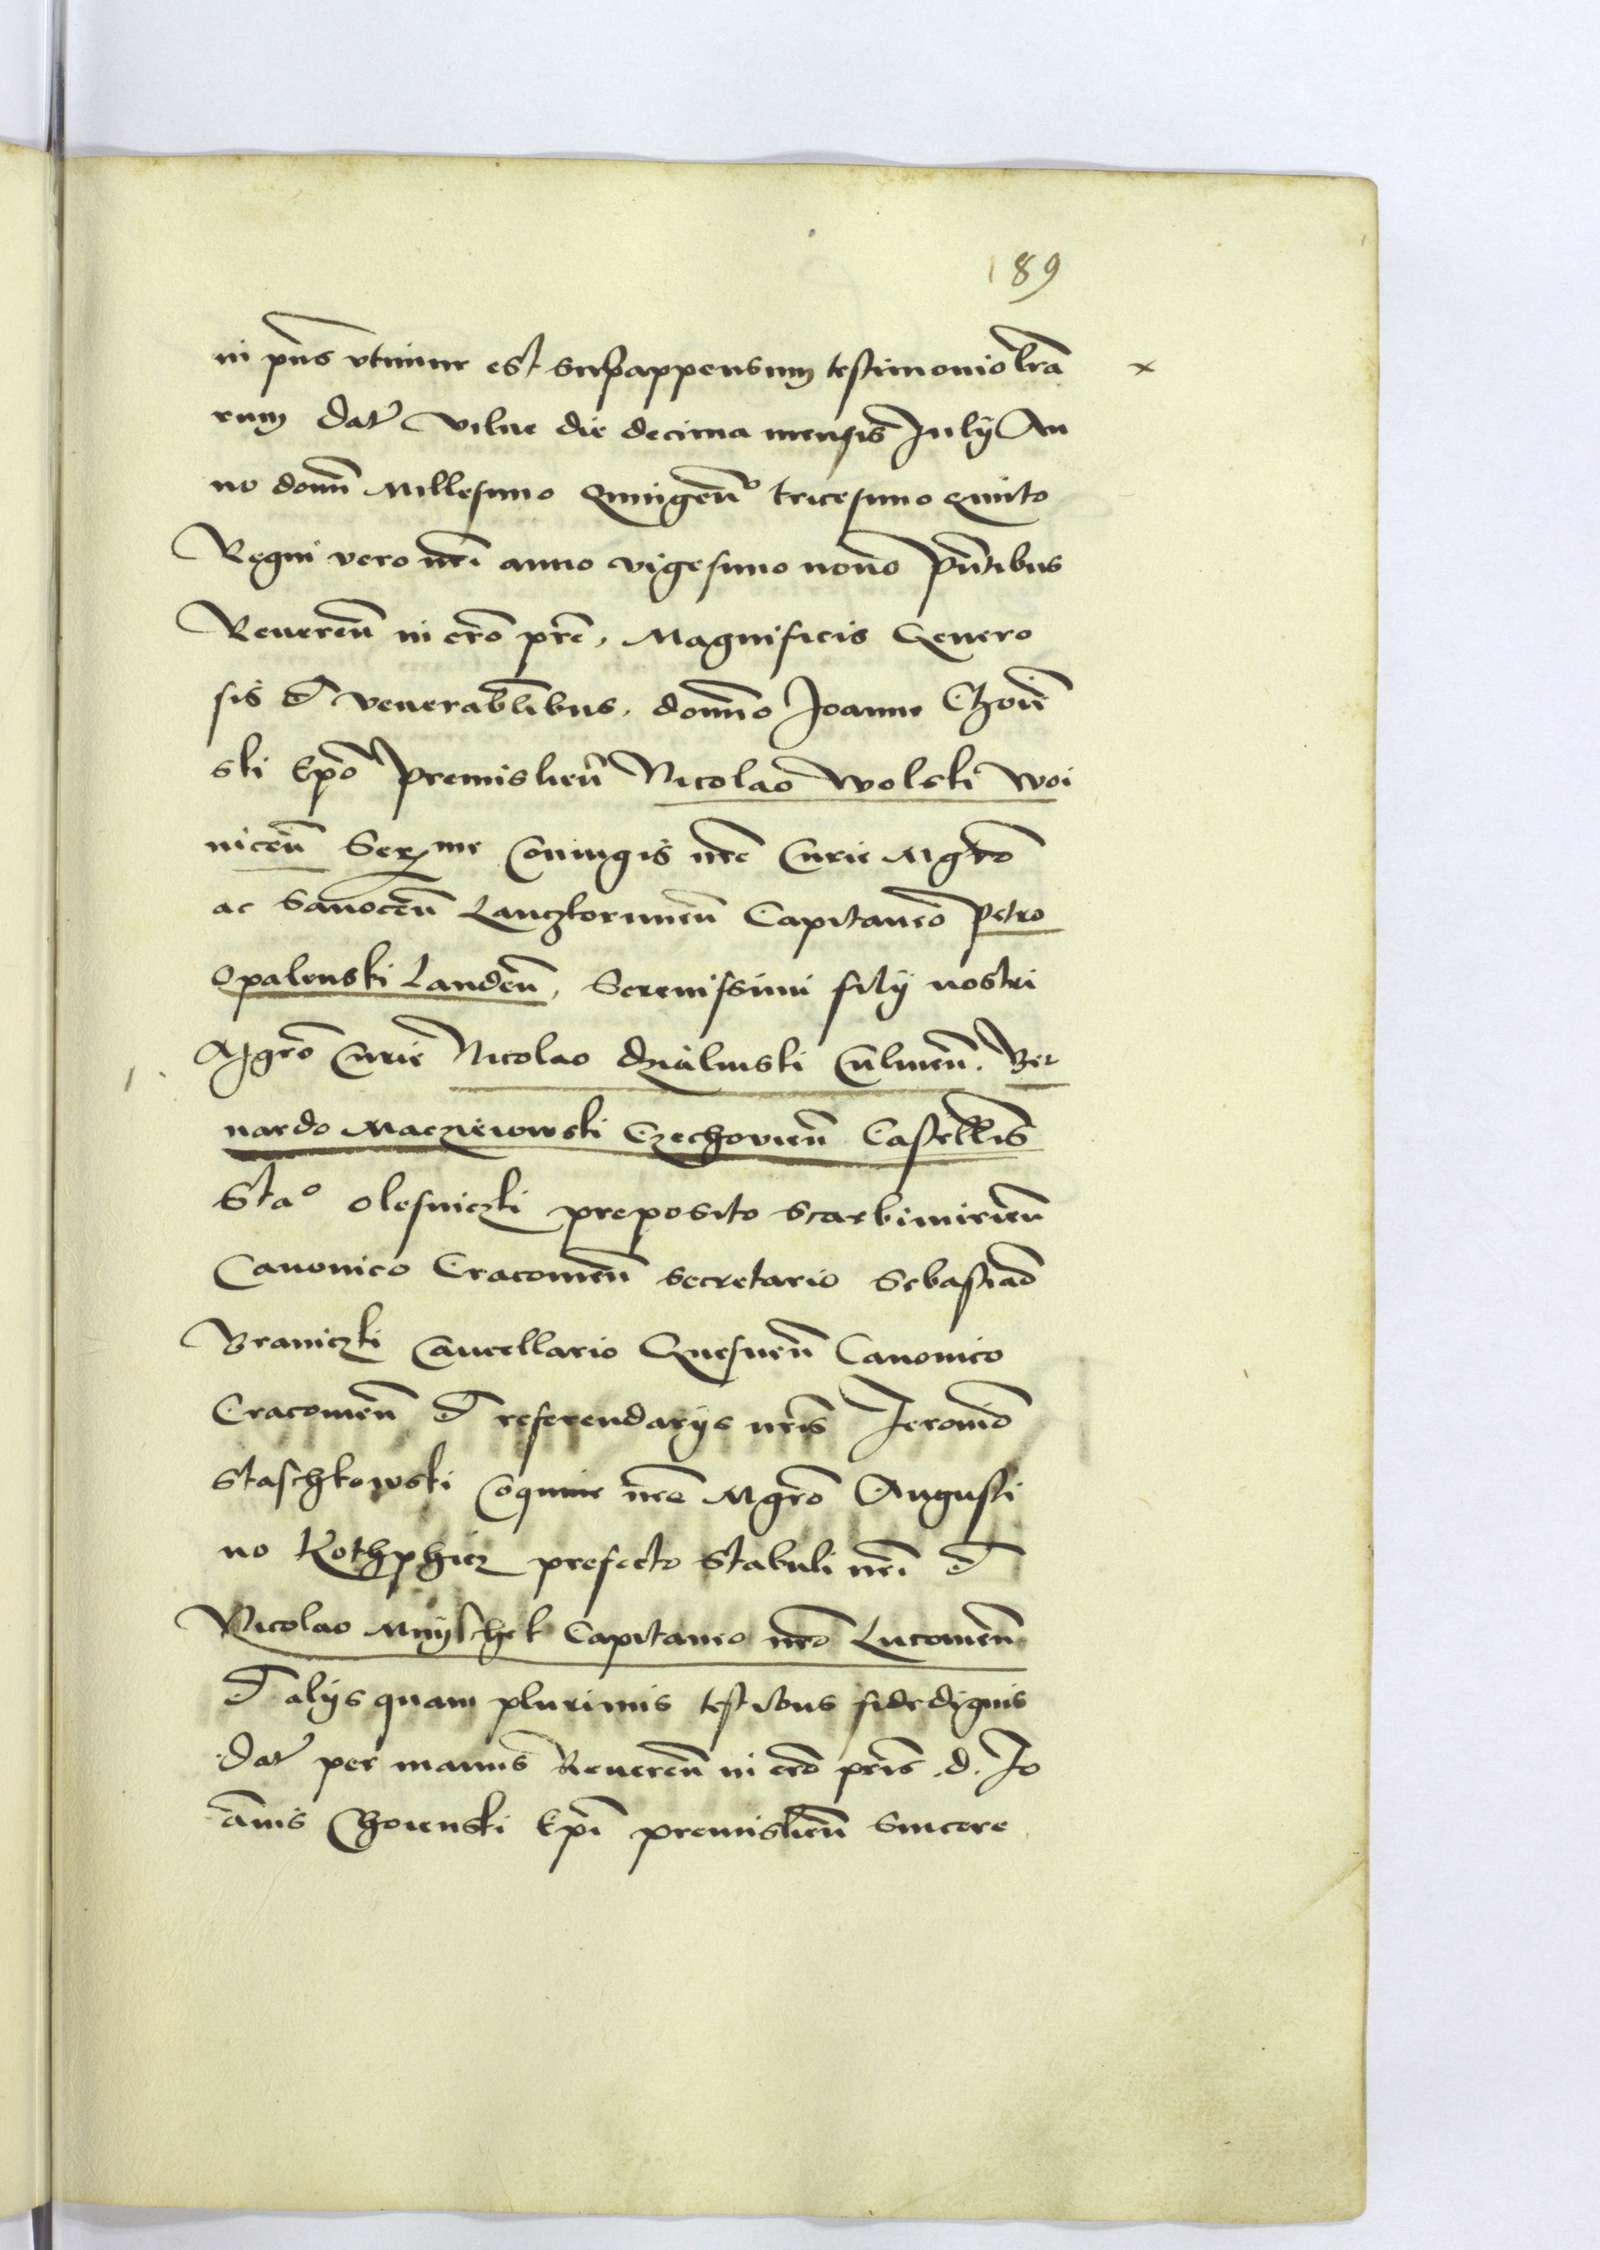 189
in pñs vtimur est subappensum testimonio lrã
rum dat̃ Vilne die decima mensis July An
no domĩ Millesimo Quingeñᵒ tricesimo quinto
Regni vero nrĩ anno vigesimo nono p̃ntibus
Reuereñ in cr̃o pr̃e, Magnificis Genero
sis et venerabĩlibus, domĩno Joanne Choiẽ
ski Ep̃o Premislieñ Nicolao Wolski Woi
niceñ Serᵐᵉ Coniugis nr̃e Curie Mgr̃o
ac Sanoceñ Lanczkorunieñ Capitaneo Petro
Opalenski Landeñ, Serenissimi filÿ nostri
Mgr̃o Curie Nicolao Dzialinski Culmeñ. Ber
nardo Macziewski Czechovieñ Castellĩs
Staᵒ Olesniczki preposito Scarbimirieñ
Canonico Cracovieñ Secretario Sebastiaõ
Braniczki Cancellario Gnesneñ Canonico
Cracovieñ et referendarÿs nr̃is Jeronĩo
Staschkowski Coquine nr̃e Mgr̃o Augusti
no Kothphicz prefecto Stabuli nr̃i et
Nicolao Mnÿschek Capitaneo nr̃o Lucovieñ
et alÿs quam plurimis testibus fidedignis
Dat̃ per manus Reuereñ in cr̃o pr̃is .d. Jo
ãnis Choienski Ep̃i premislieñ Sincere